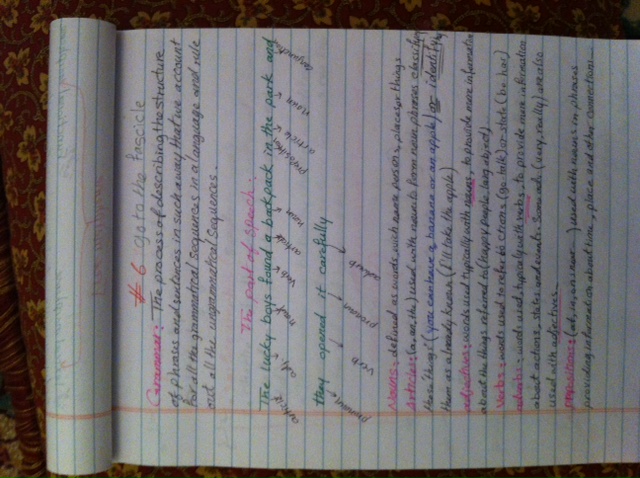 # 6 go to the fascicle
Grammar: The process of describing the structure
of phrases and sentences in such away that we account
for all the grammatical sequences in a language and rule
out all the ungrammatical sequences.
The part of speech:
The lucky boys found a backpack in the park and
article adj. noun verb article noun preposition article noun conjunction
they opened it carefully
pronoun verb pronoun adverb
Nouns: defined as words wich name persons, place or things
Articles: (a, an, the) used with nouns to form noun phrases classifying
those "things" (you can have a banana or an apple) or identifying
them as already known (I'll take the apple)
adjectives: words used typically with nouns, to provide more information
about the things refered to (happy people, long object)
Verbs: words used to refer to actions (go, talk) or state (be, has)
adverbs: words used, typically with verbs, to provide more information
about actions, states and events. Some adv (very, really) are also
used with adjectives.
prepositions: (at, in, on, near ...) used with nouns in phrases
providing information about time, place and other connections